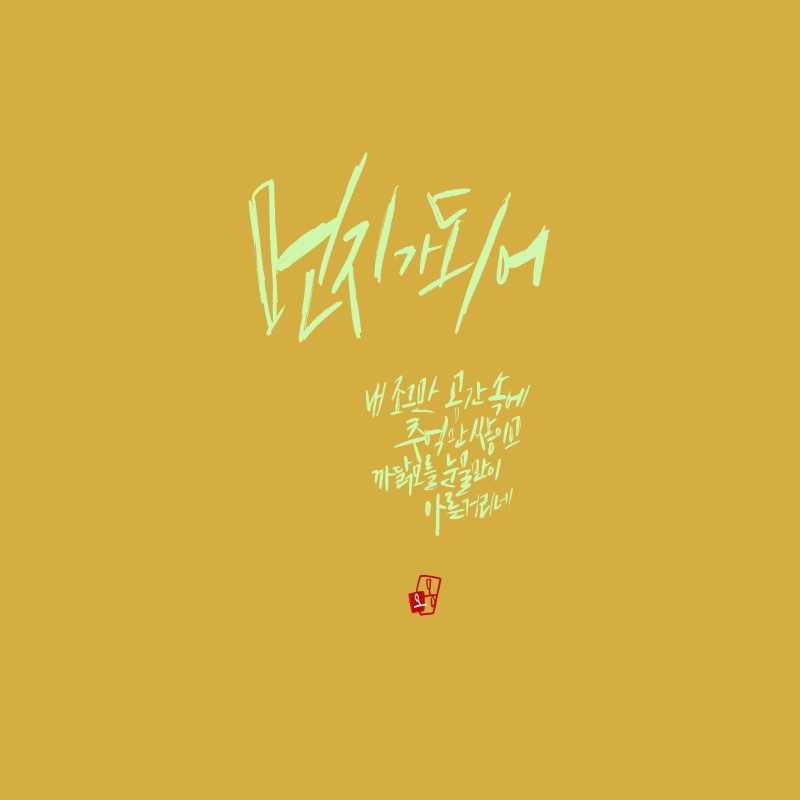 먼지가되어
내 조그만 공간 속에
추억만 쌓이고
까닭모를 눈물만이
아른거리네